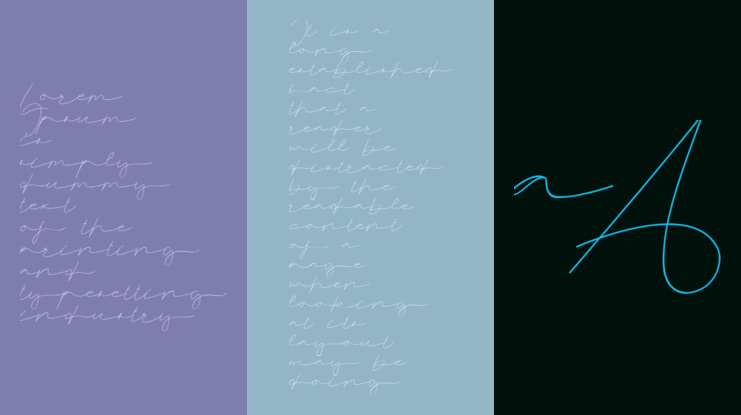 Lorem
Ipsum
is
simply
dummy
text
of the
printing
and
typesetting
industry
It is a
long
established
fact
that a
reader
will be
distracted
by the
readable
content
of a
page
when
looking
at its
layout
may be
doing
A